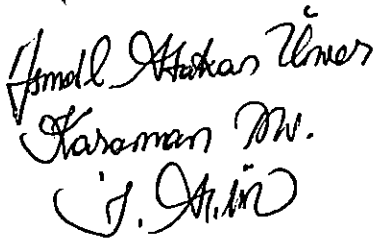 İsmail Atakan Ünver
Karaman Mv.
İ. At. Ün